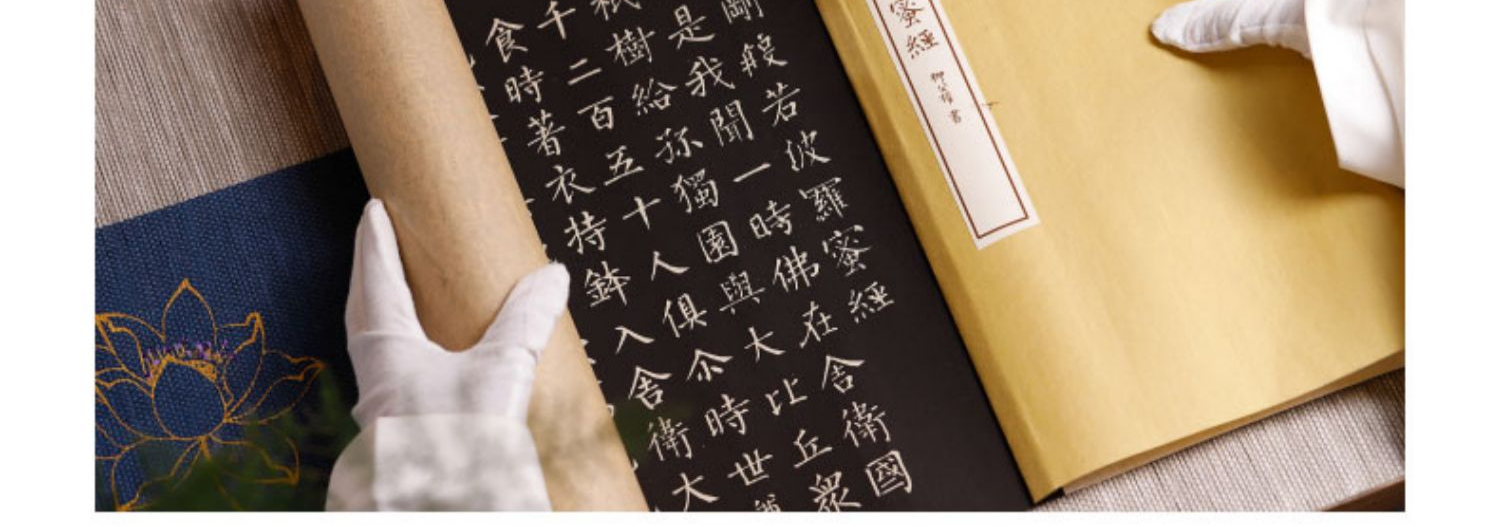 蜜經
柳公權書
剛般若波羅蜜經
是我聞一時佛在舍衛國
祇樹給孤獨園與大比丘眾
千二百五十人俱尒時世
食時著衣持鉢入舍衛大